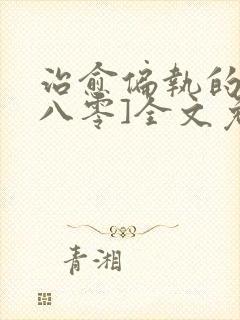 治愈偏执的
八零]全文免
青湘